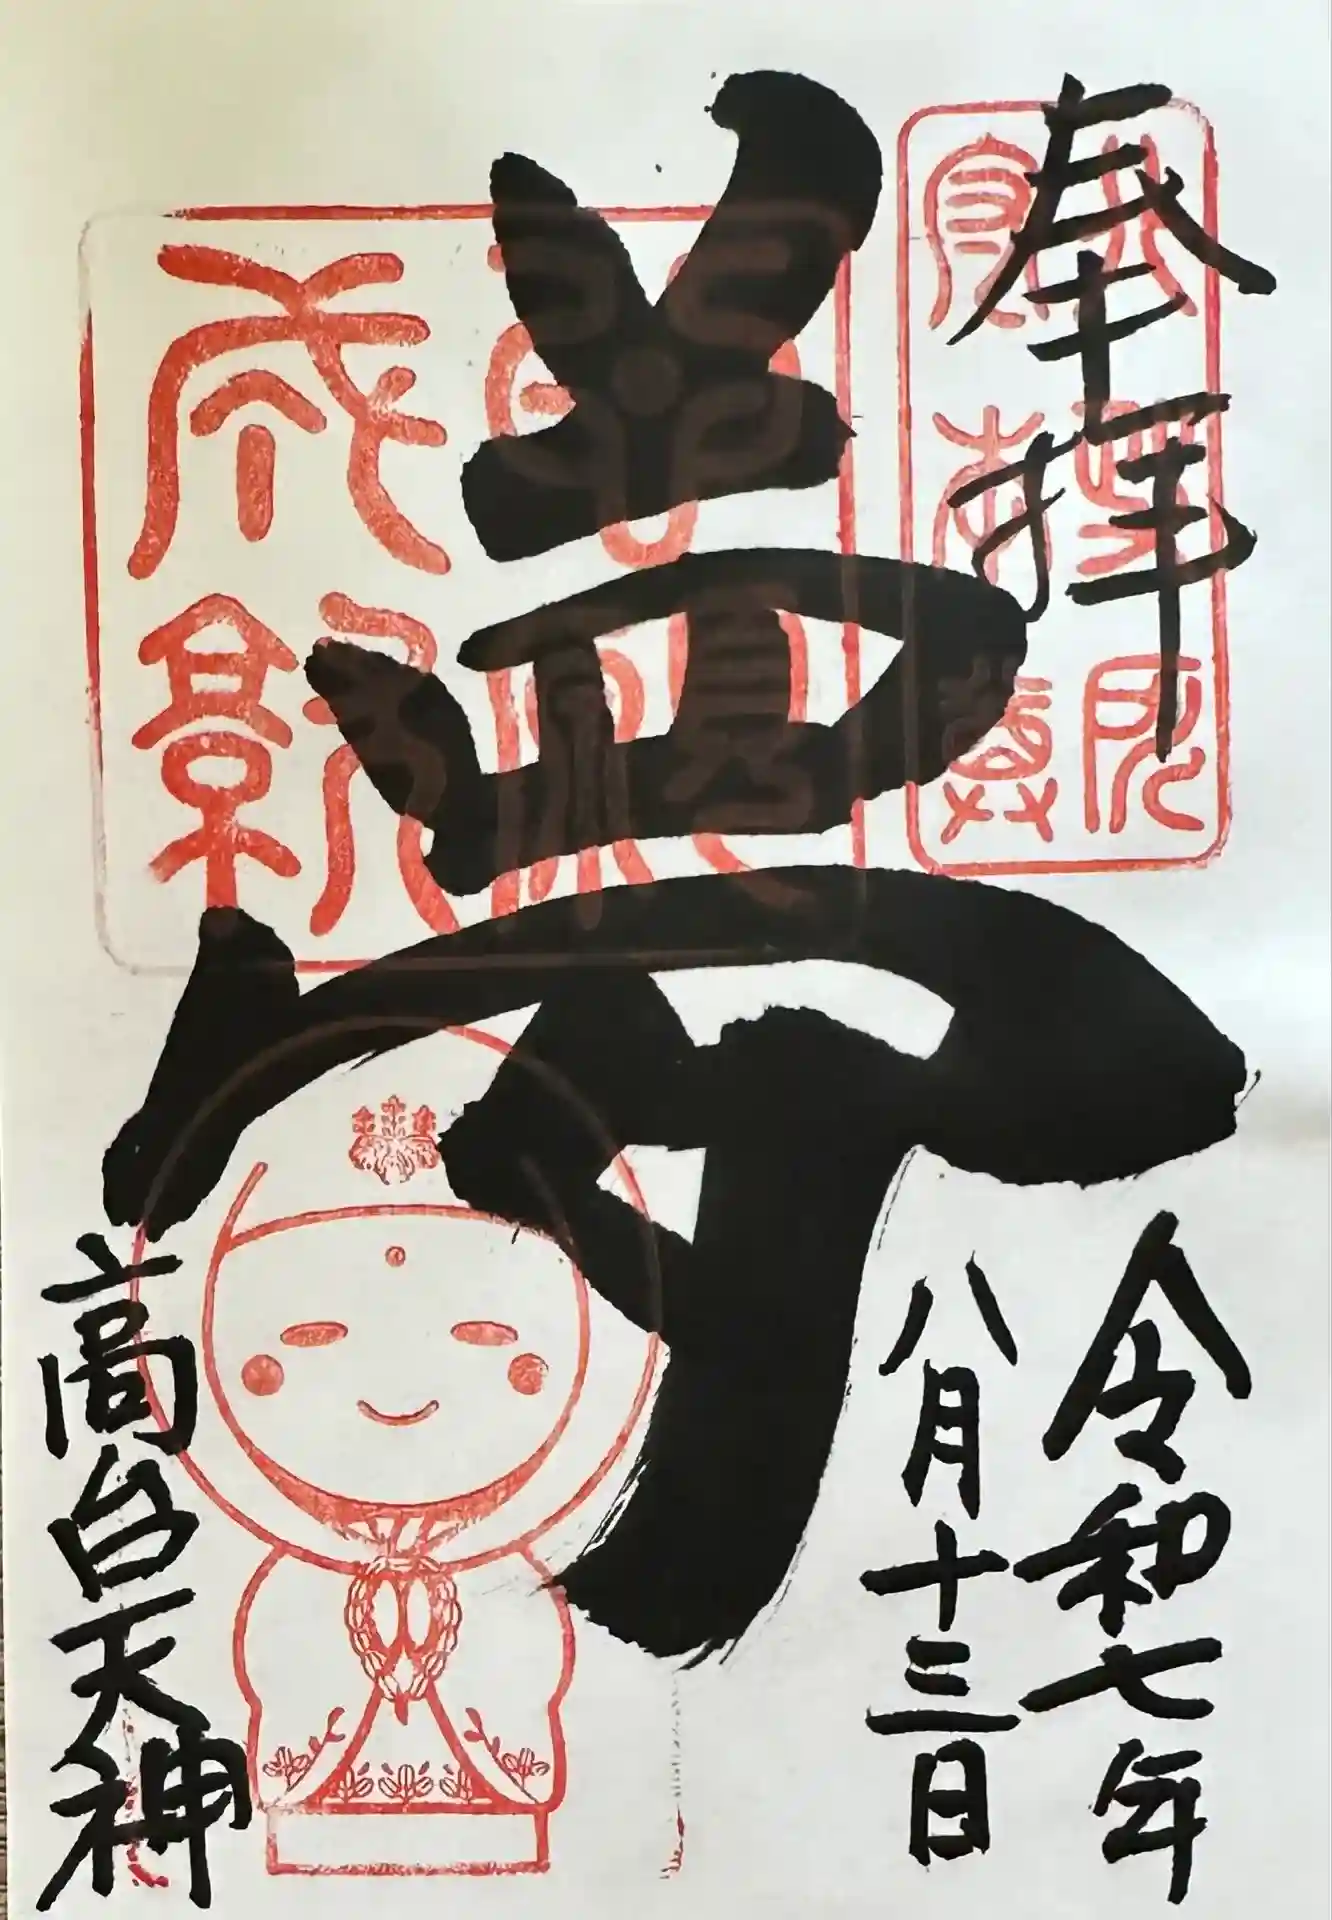 奉拝
令和七年
八月十三日
夢
高台天神